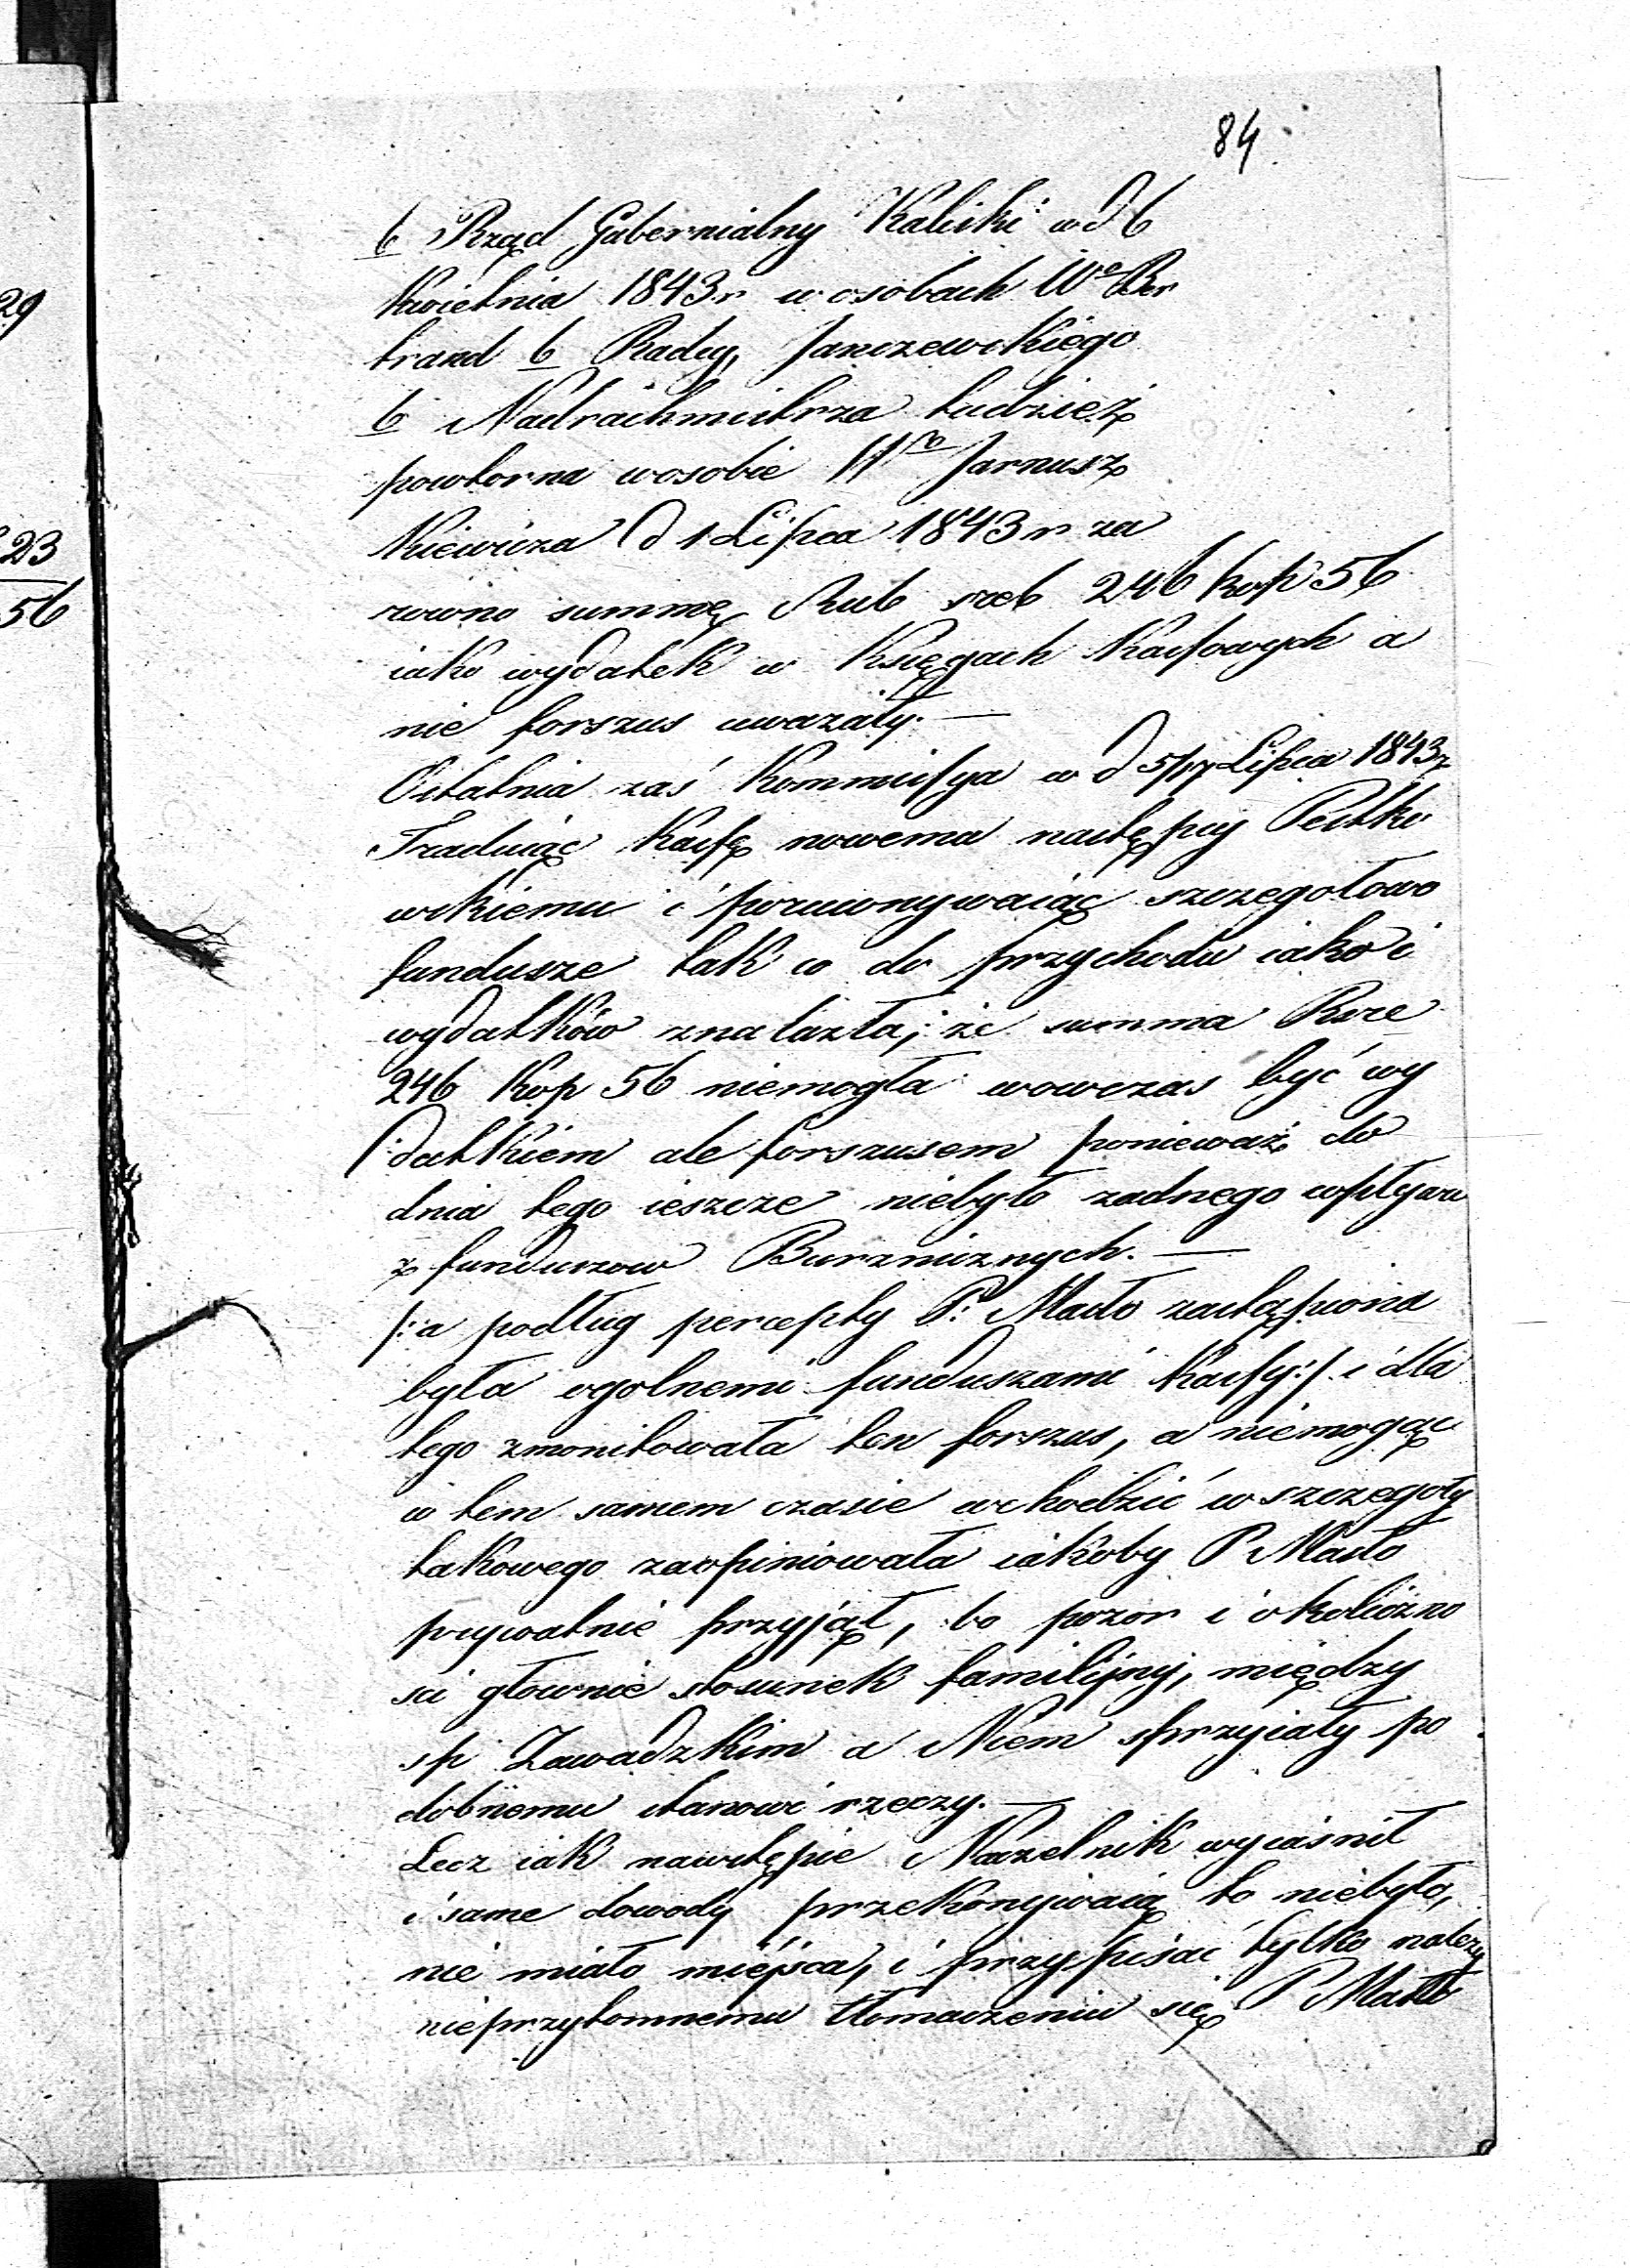 84
b Rząd Gubernialny Kaliski w d 6
Kwietnia 1843 r w osobach We Ber
trand b Radcy, Janczewskiego
b Nadrachmistrza tudzież
powtorna w osobie Wgo Jarnusz
kiewicza d 1 Lipca 1843 r za
rowno summę Rub sreb 246 kop 56
iako wydatek w Księgach Kassowych a
nie forszus uwazały. —
Ostatnia zaś Kommissya w d 5/17 Lipca 1843 r
Traduiąc Kassę nowemu następcy Pestko
wskiemu i porównywaiąc szczegołowo
fundusze tak co do przychodu iako i
wydatków znalazła, że summa Rsre
246 Kop 56 niemogła wowczas być wy
datkiem ale forszusem ponieważ do
dnia tego ieszcze niebyło zadnego wpływu
z funduszow Burzniznych. —
/: a podług percepty P. Masło zastąpiona
była ogolnemi funduszami Kassy :/ i dla
tego zmonitowała ten forszus, a niemogąc
w tem samem czasie wchodzić w szczegoły
takowego zaopiniowała iakoby P Masło
prywatnie przyjął, bo pozor i okoliczno
sci głownie stosunek familijny, między
sp Zawadzkim a Niem sprzyiały po
dobnemu stanowi rzeczy. —
Lecz iak nawstępie Naczelnik wyiasnił
i same dowody przekonywaią to niebyło,
nie miało mieysca, i przypisać tylko nalezy
nieprzytomnemu tłomaczeniu się P Masło
29
23
56